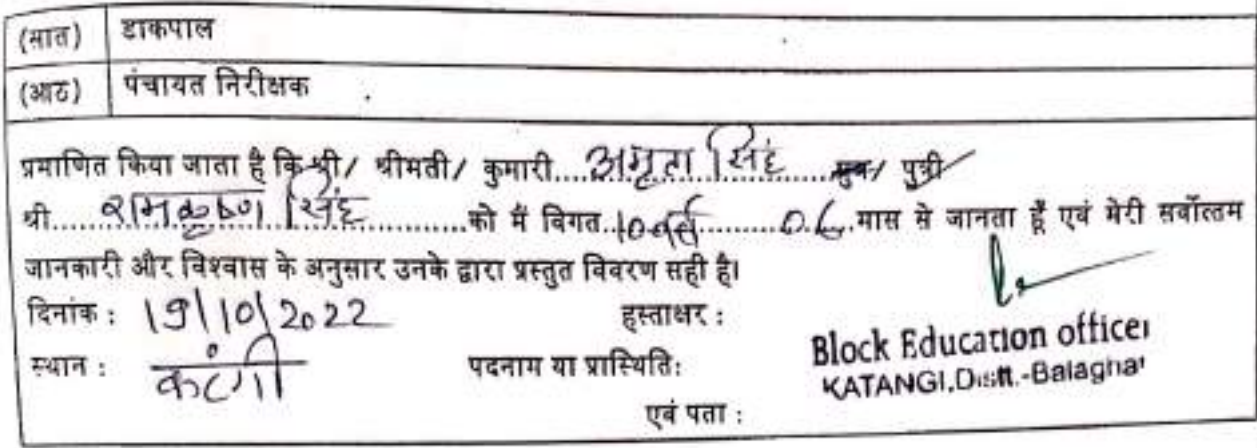 (सात) डाकपाल
(आठ) पंचायत निरीक्षक
प्रमाणित किया जाता है कि श्री/ श्रीमती/ कुमारी....अमृता सिंह....सुत्र/ पुत्री
श्री....रामकृष्ण सिंह....को मैं विगत..10 वर्ष....06.मास से जानता हूँ एवं मेरी सर्वोत्तम
जानकारी और विश्वास के अनुसार उनके द्वारा प्रस्तुत विवरण सही है।
दिनांक : 19/10/2022 हस्ताक्षर :
स्थान : कटंगी पदनाम या प्रास्थिति: Block Education officer
KATANGI,Distt.-Balaghat
एवं पता :